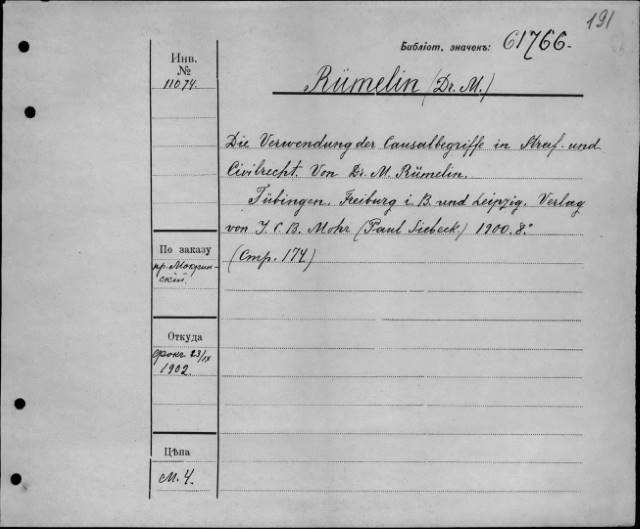 191
Библіот. значекъ: 61766.
Инв.
№
11074.
Rümelin (Dr. M.)
Die Verwendung der Causalbegriffe in Straf- und
Civilrecht. Von Dr. M. Rümelin.
Tübingen, Freiburg i. B. und Leipzig. Verlag
von J. C. B. Mohr (Paul Siebeck) 1900. 8.°
(Стр. 174)
По заказу
пр. Мокрин-
скій.
Откуда
23/IX
1902.
Цѣна
М. 4.